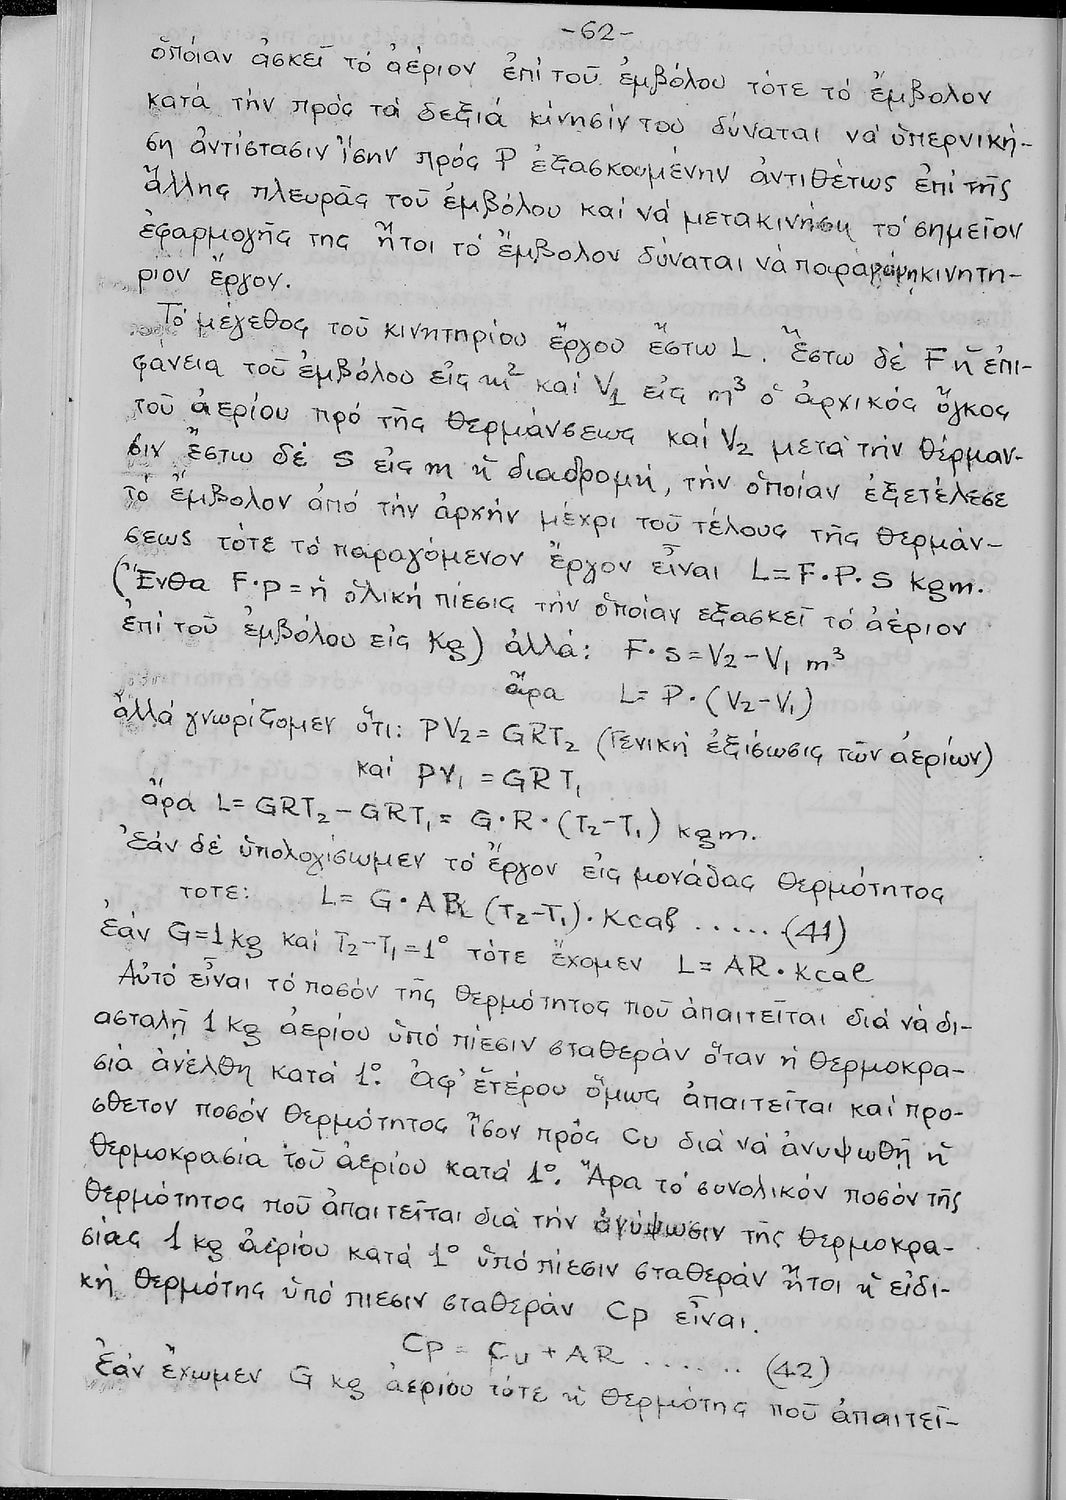 -62-
ὁποίαν ἀσκεῖ τό ἀέριον ἐπί τοῦ ἐμβόλου τότε τό ἔμβολον
κατά τήν πρός τά δεξιά κίνησίν του δύναται νά ὑπερνική-
ση ἀντίστασιν ἴσην πρός P ἐξασκουμένην ἀντιθέτως ἐπί τῆς
ἄλλης πλευρᾶς τοῦ ἐμβόλου καί νά μετακινήση τό σημεῖον
ἐφαρμογῆς της ἤτοι τό ἔμβολον δύναται νά παραγάγη κινητή-
ριον ἔργον.
Τό μέγεθος τοῦ κινητηρίου ἔργου ἔστω L. Ἔστω δέ F ἡ ἐπι-
φάνεια τοῦ ἐμβόλου εἰς m² καί V₁ εἰς m³ ὁ ἀρχικός ὄγκος
τοῦ ἀερίου πρό τῆς θερμάνσεως καί V₂ μετά τήν θέρμαν-
σιν ἔστω δέ S εἰς m ἡ διαδρομή, τήν ὁποίαν ἐξετέλεσε
τό ἔμβολον ἀπό τήν ἀρχήν μέχρι τοῦ τέλους τῆς θερμάν-
σεως τότε τό παραγόμενον ἔργον εἶναι L=F·P·S kgm.
(Ἔνθα F·p=ἡ ὁλική πίεσις τήν ὁποίαν εξασκεῖ τό ἀέριον
ἐπί τοῦ ἐμβόλου εἰς Kg) ἀλλά: F·s=V₂-V₁ m³
ἄρα L= P·(V₂-V₁)
ἀλλά γνωρίζομεν ὅτι: PV₂= GRT₂ (Γενική ἐξίσωσις τῶν ἀερίων)
καί PV₁ = GRT₁
ἄρα L=GRT₂-GRT₁= G·R·(T₂-T₁) kgm.
Ἐάν δέ ὑπολογίσωμεν τό ἔργον εἰς μονάδας θερμότητος
τοτε: L= G·AR (T₂-T₁)·Kcal ......(41)
ἐάν G=1kg καί T₂-T₁=1° τότε ἔχομεν L= AR·Kcal
Αὐτό εἶναι τό ποσόν τῆς θερμότητος ποῦ ἀπαιτεῖται διά νά δι-
ασταλῇ 1 kg ἀερίου ὑπό πίεσιν σταθεράν ὅταν ἡ θερμοκρα-
σία ἀνέλθη κατά 1°. Ἀφ' ἑτέρου ὅμως ἀπαιτεῖται καί πρό-
σθετον ποσόν θερμότητος ἴσον πρός Cυ διά νά ἀνυψωθῇ ἡ
θερμοκρασία τοῦ ἀερίου κατά 1°. Ἄρα τό συνολικόν ποσόν τῆς
θερμότητος ποῦ ἀπαιτεῖται διά τήν ἀνύψωσιν τῆς θερμοκρα-
σίας 1 kg ἀερίου κατά 1° ὑπό πίεσιν σταθεράν ἤτοι ἡ εἰδι-
κή θερμότης ὑπό πιεσιν σταθεράν Cp εἶναι.
Cp = Cυ + AR ....... (42)
Ἐάν ἔχωμεν G kg ἀερίου τότε ἡ θερμότης ποῦ ἀπαιτεῖ-